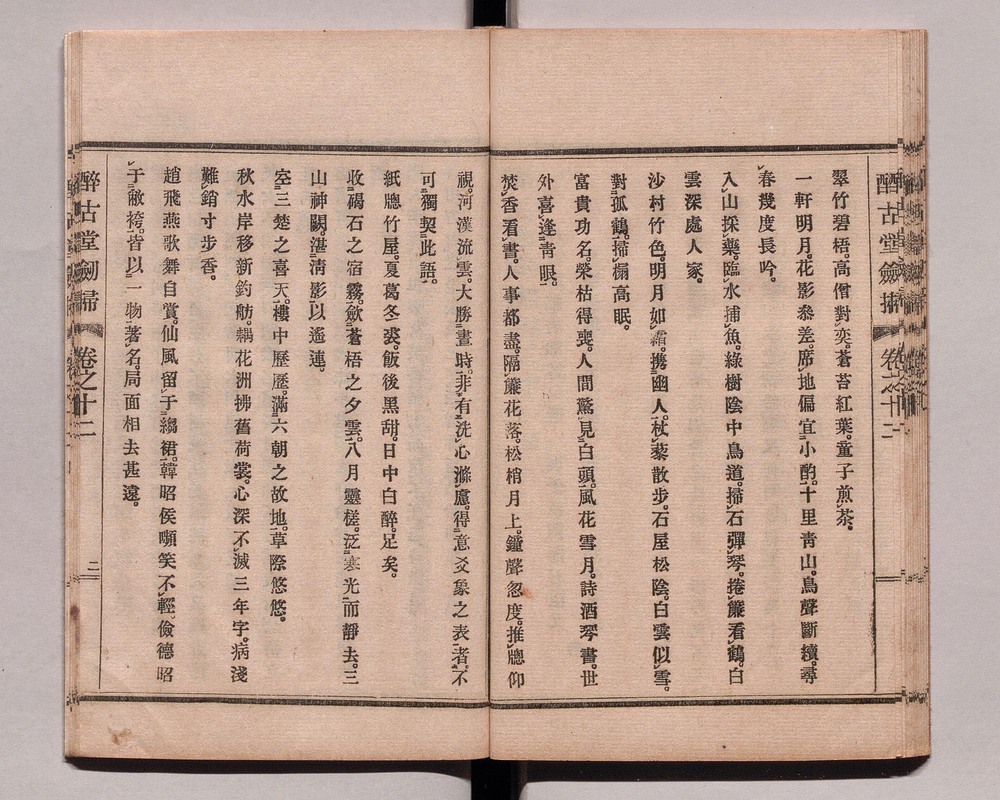 醉古堂劍掃 卷之十二
翠竹碧梧。高僧對奕。蒼苔紅葉。童子煎茶。
一軒明月。花影參差。席地偏宜小酌。十里靑山。鳥聲斷續。尋
春幾度長吟。
入山採藥。臨水捕魚。綠樹陰中鳥道。掃石彈琴。捲簾看鶴。白
雲深處人家。
沙村竹色。明月如霜。携幽人。杖藜散步。石屋松陰。白雲似雪。
對孤鶴。掃榻高眠。
富貴功名。榮枯得喪。人間驚見白頭。風花雪月。詩酒琴書。世
外喜逢靑眼。
焚香看書。人事都盡。隔簾花落。松梢月上。鐘聲忽度。推牕仰
視。河漢流雲。大勝晝時。非有洗心滌慮。得意爻象之表者。不
可獨契此語。
紙牕竹屋。夏葛冬裘。飯後黑甜。日中白醉。足矣。
收碣石之宿霧。斂蒼梧之夕雲。八月靈槎。泛寒光而靜去。三
山神闕。湛淸影以遙連。
空三楚之喜天。樓中歷歷。滿六朝之故地。草際悠悠。
秋水岸移新釣舫。藕花洲拂舊荷裳。心深不滅三年字。病淺
難銷寸步香。
趙飛燕歌舞自賞。仙風留于縐裙。韓昭侯嚬笑不輕。儉德昭
于敝袴。皆以一物著名。局面相去甚遠。
醉古堂劍掃 卷之十二
二